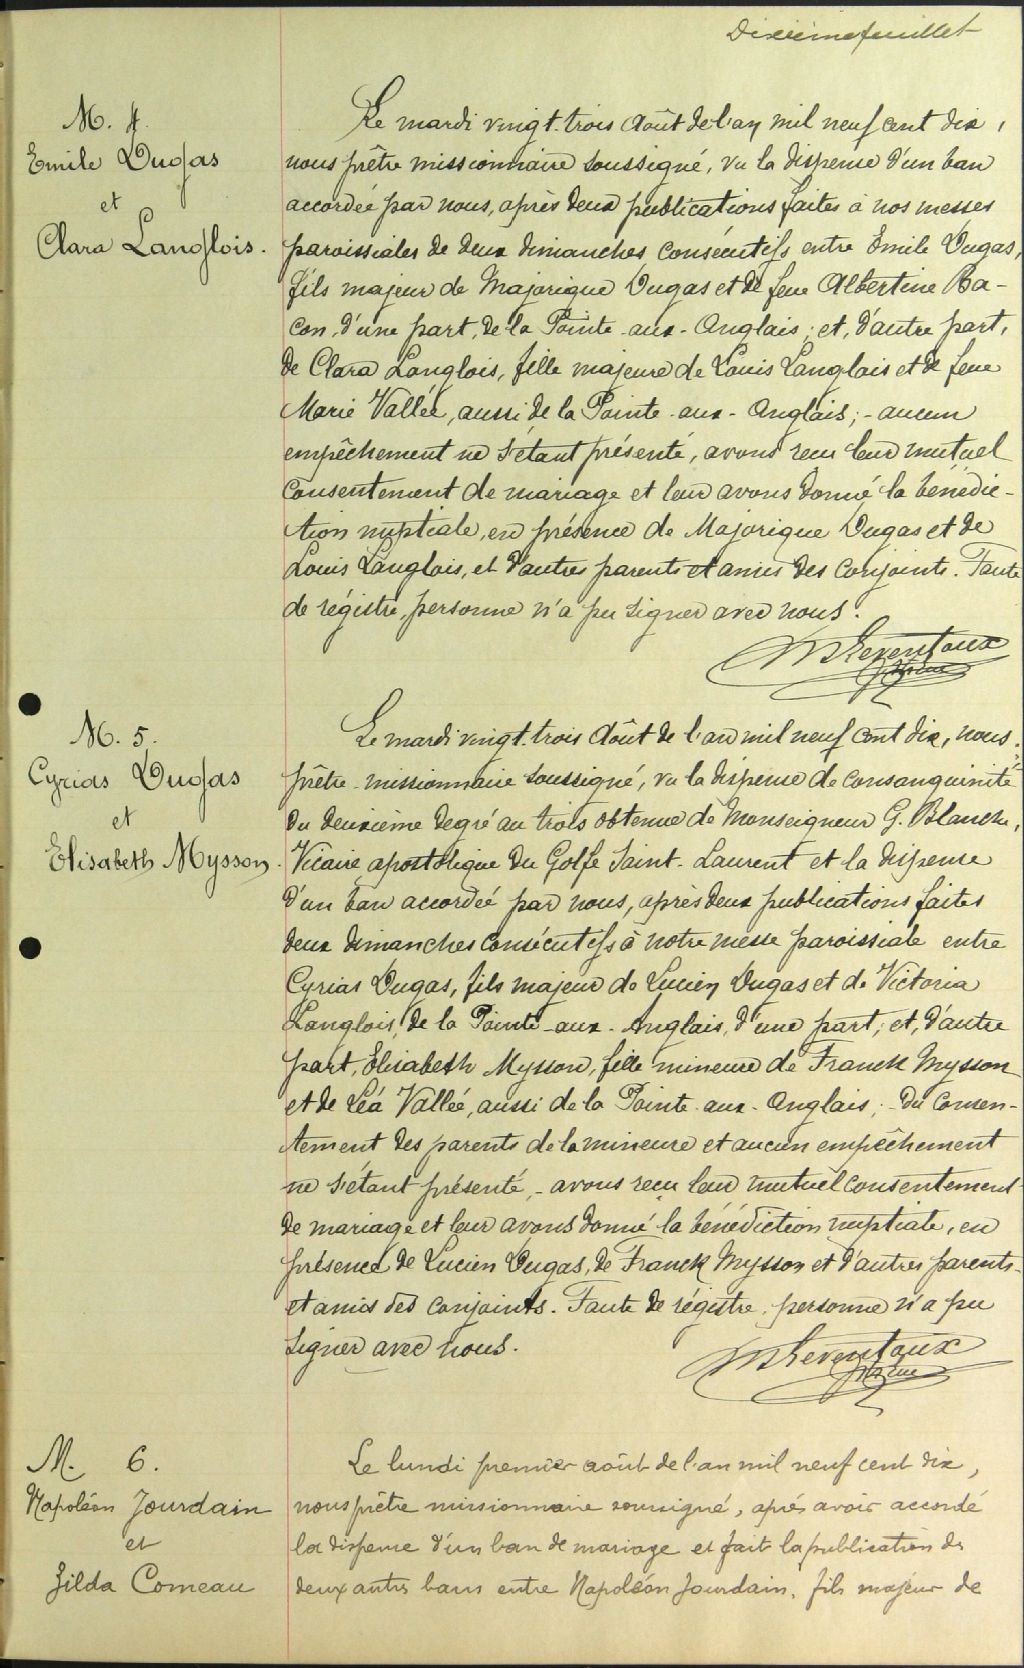 Dixième feuillet
M. 4.
Emile Dugas
et
Clara Langlois.
Le mardi vingt-trois Août de l'an mil neuf cent dix,
nous prêtre missionnaire soussigné, vu la dispense d'un ban
accordée par nous, après deux publications faites à nos messes
paroissiales de deux dimanches consécutifs entre Emile Dugas,
fils majeur de Majorique Dugas et de feue Albertine Ba-
con, d'une part, de la Pointe-aux-Anglais; et, d'autre part,
de Clara Langlois, fille majeure de Louis Langlois et de feue
Marie Vallée, aussi de la Pointe-aux-Anglais; - aucun
empêchement ne s'étant présenté, avons reçu leur mutuel
consentement de mariage et leur avons donné la bénédic-
tion nuptiale, en présence de Majorique Dugas et de
Louis Langlois, et d'autres parents et amis des conjoints. Faute
de régistre, personne n'a pu signer avec nous.
M. 5.
Cyrias Dugas
et
Elisabeth Mysson.
Le mardi vingt-trois Août de l'an mil neuf cent dix, nous
prêtre-missionnaire soussigné, vu la dispense de consanguinité
du deuxième degré au trois obtenue de Monseigneur G. Blanche,
Vicaire apostolique du Golfe Saint-Laurent et la dispense
d'un ban accordée par nous, après deux publications faites
deux dimanches consécutifs à notre messe paroissiale entre
Cyrias Dugas, fils majeur de Lucien Dugas et de Victoria
Langlois, de la Pointe-aux-Anglais, d'une part; et, d'autre
part, Elisabeth Mysson, fille mineure de Franck Mysson
et de Léa Vallée, aussi de la Pointe-aux-Anglais; - Du consen-
tement des parents de la mineure et aucun empêchement
ne s'étant présenté, - avons reçu leur mutuel consentement
de mariage et leur avons donné la bénédiction nuptiale, en
présence de Lucien Dugas, de Franck Mysson et d'autres parents
et amis des conjoints. Faute de régistre, personne n'a pu
signer avec nous.
M. 6.
Napoléon Jourdain
et
Zilda Comeau
Le lundi premier août de l'an mil neuf cent dix,
nous prêtre missionnaire soussigné, après avoir accordé
la dispense d'un ban de mariage et fait la publication de
deux autres bans entre Napoléon Jourdain, fils majeur de